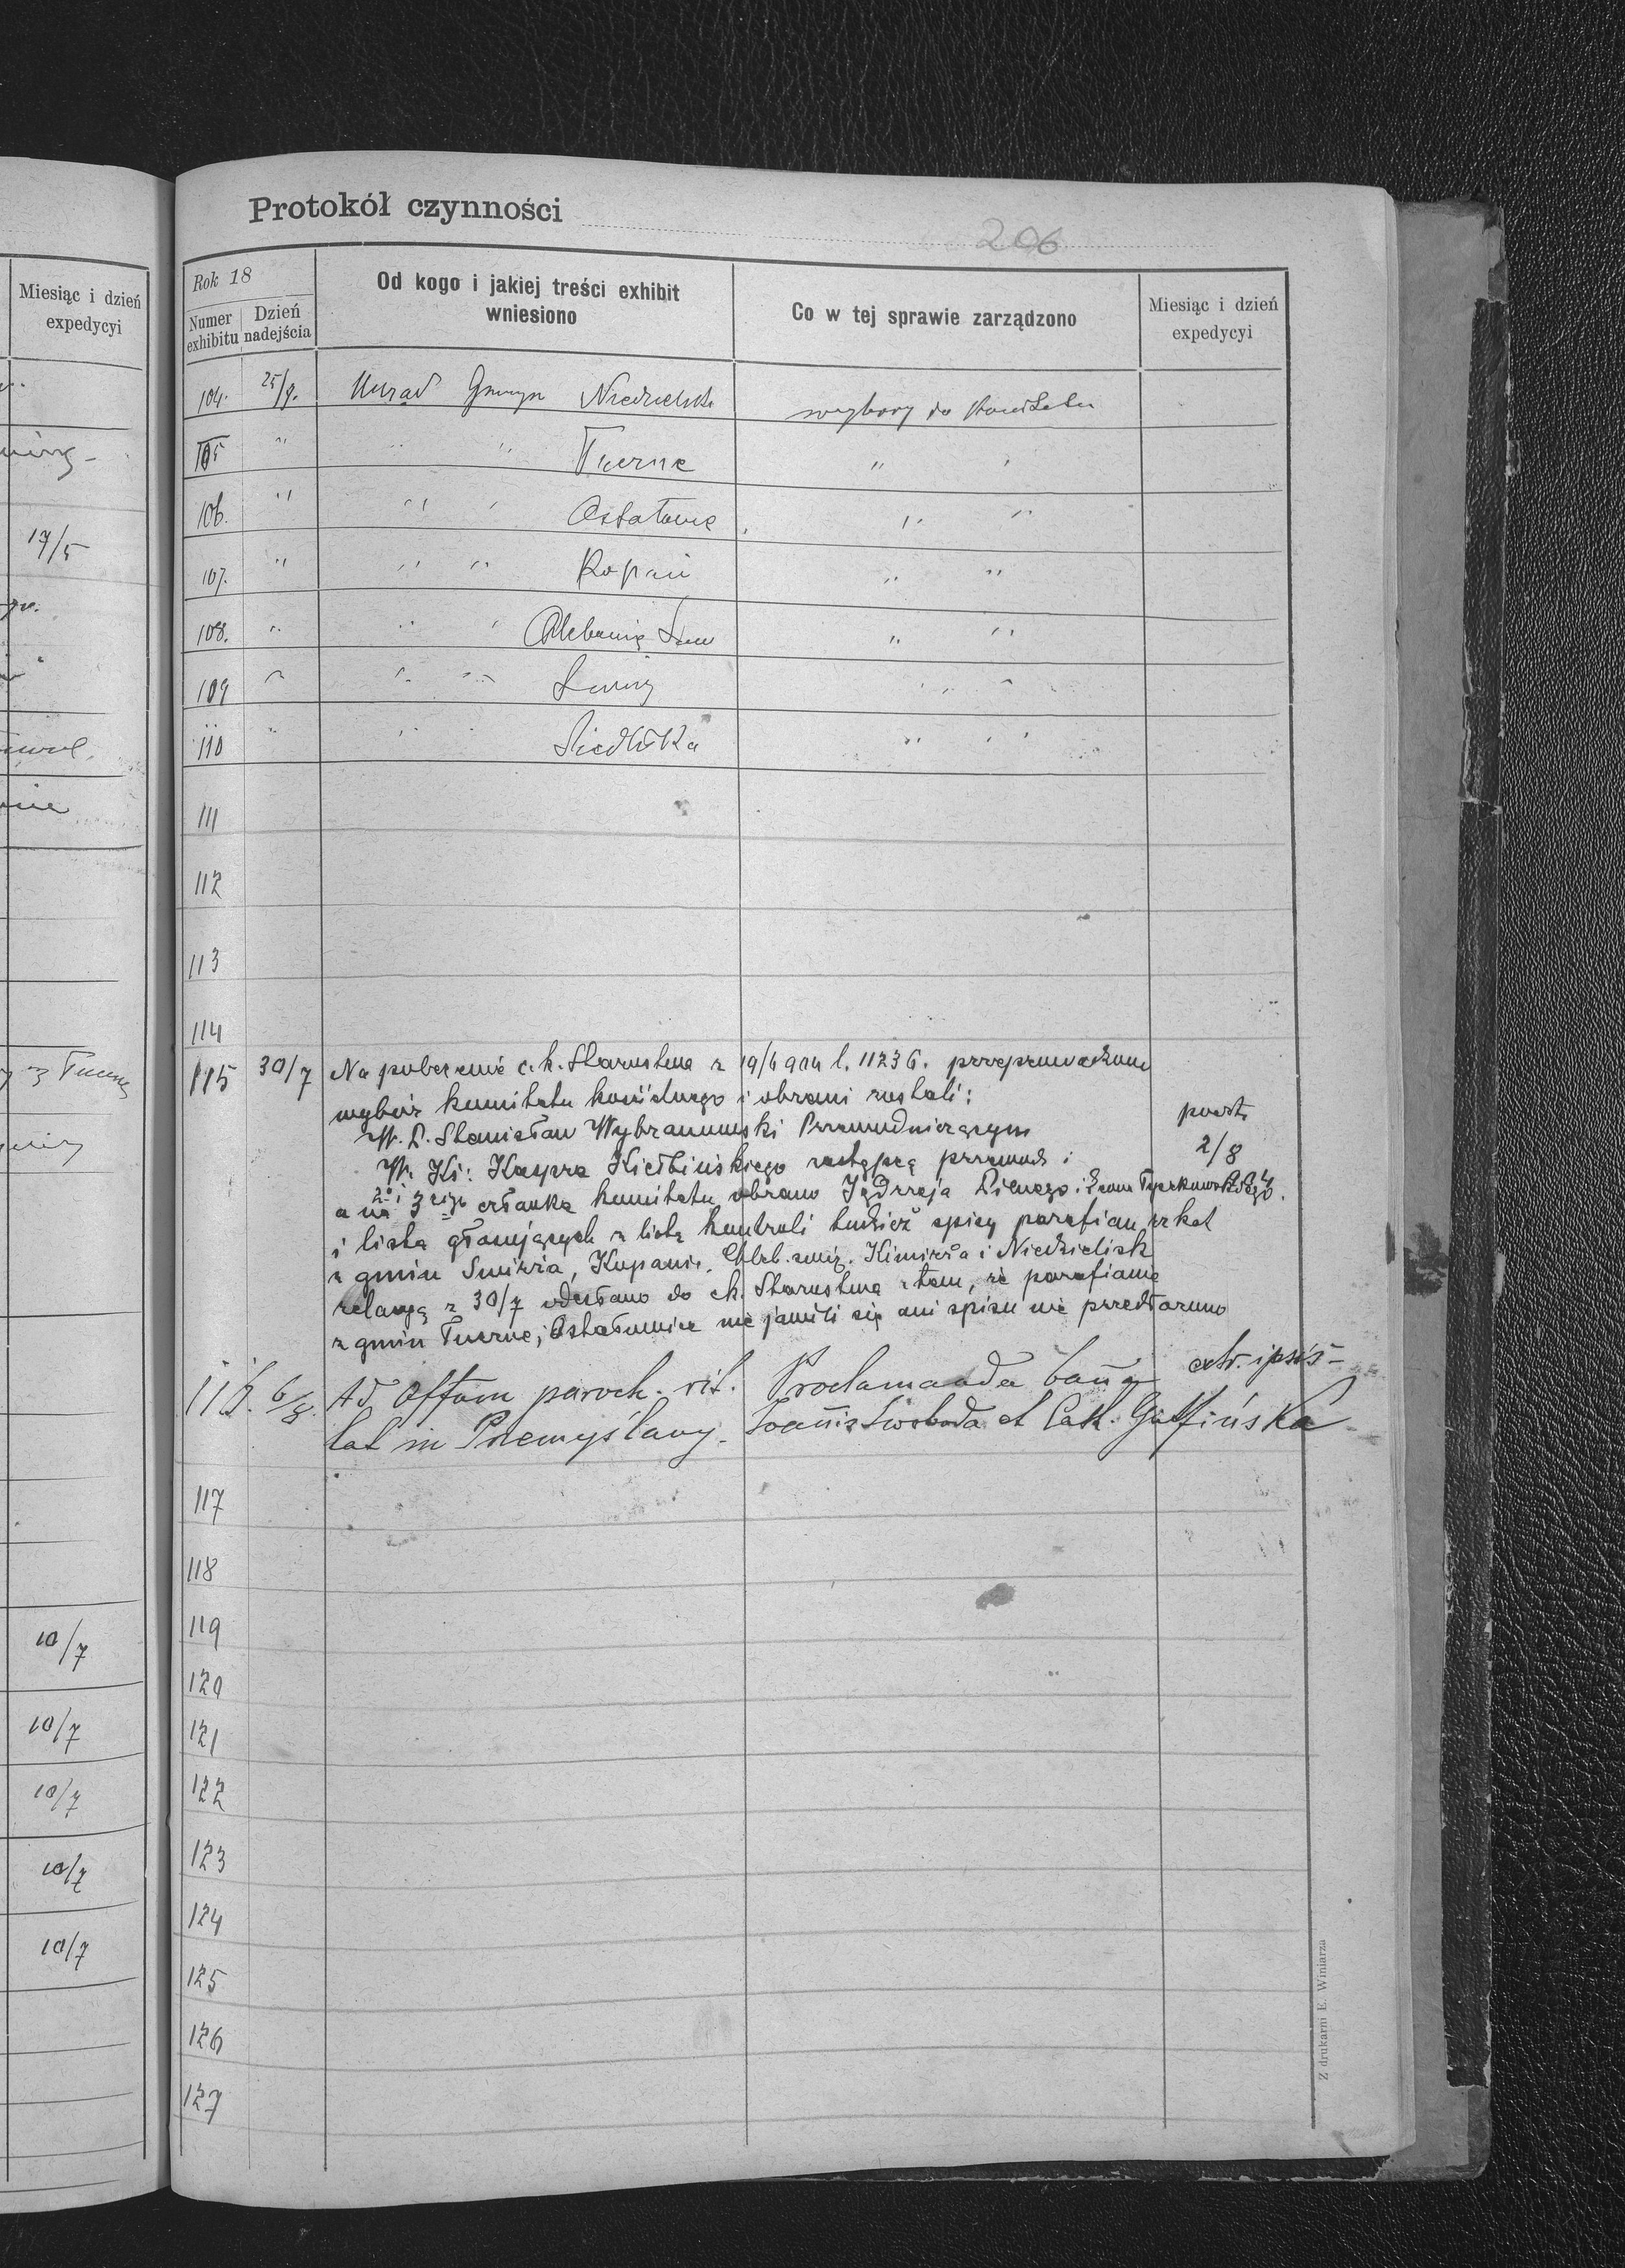 Miesiąc i dzień
expedycyi
17/5
z Tucznę
10/7
10/7
10/7
10/7
10/7
Protokół czynności
206
Rok 18
Numer exhibitu
Dzień nadejścia
Od kogo i jakiej treści exhibit wniesiono
Co w tej sprawie zarządzono
Miesiąc i dzień expedycyi
104. 25/7. Urząd Gminy Niedzieliska wybory do Komitetu
105 " " " Tuczne " "
106. " " " Ostałowice " "
107. " " " Kopań " "
108. " " " Chlebowice Świr " "
109 " " " Świrz " "
110 " " " Siedliska " "
111
112
113
114
115 30/7 Na polecenie c. k. Starostwa z 19/6 914 l. 11236. przeprowadzono
wybór komitetu kościelnego i obrani zostali:
W. P. Stanisław Wybranowski Przewodniczącym
W. Ks: Kaspra Kiełbińskiego zastępcą przewod i
a na 2 i 3 ciego członka komitetu obrano Jędrzeja
i listą głosujących z listą kontroli tudzież spisy parafian z kat
z gmin Świrza, Kopanie, Chleb. świrz. Kimirza i Niedzielisk
relacyą z 30/7 odesłano do ck. Starostwa z tem, że parafianie
z gmin Tuczne, i Ostałowice nie jawili się ani spisu nie przedłożono
poczta
2/8
116. 6/8. Ad Offum paroch. rit. Proclamanda bana extr. ipsis
lat in Przemyślany. Joannis Swoboda et Cath.
117
118
119
120
121
122
123
124
125
126
127
Z drukarni E. Winiarza